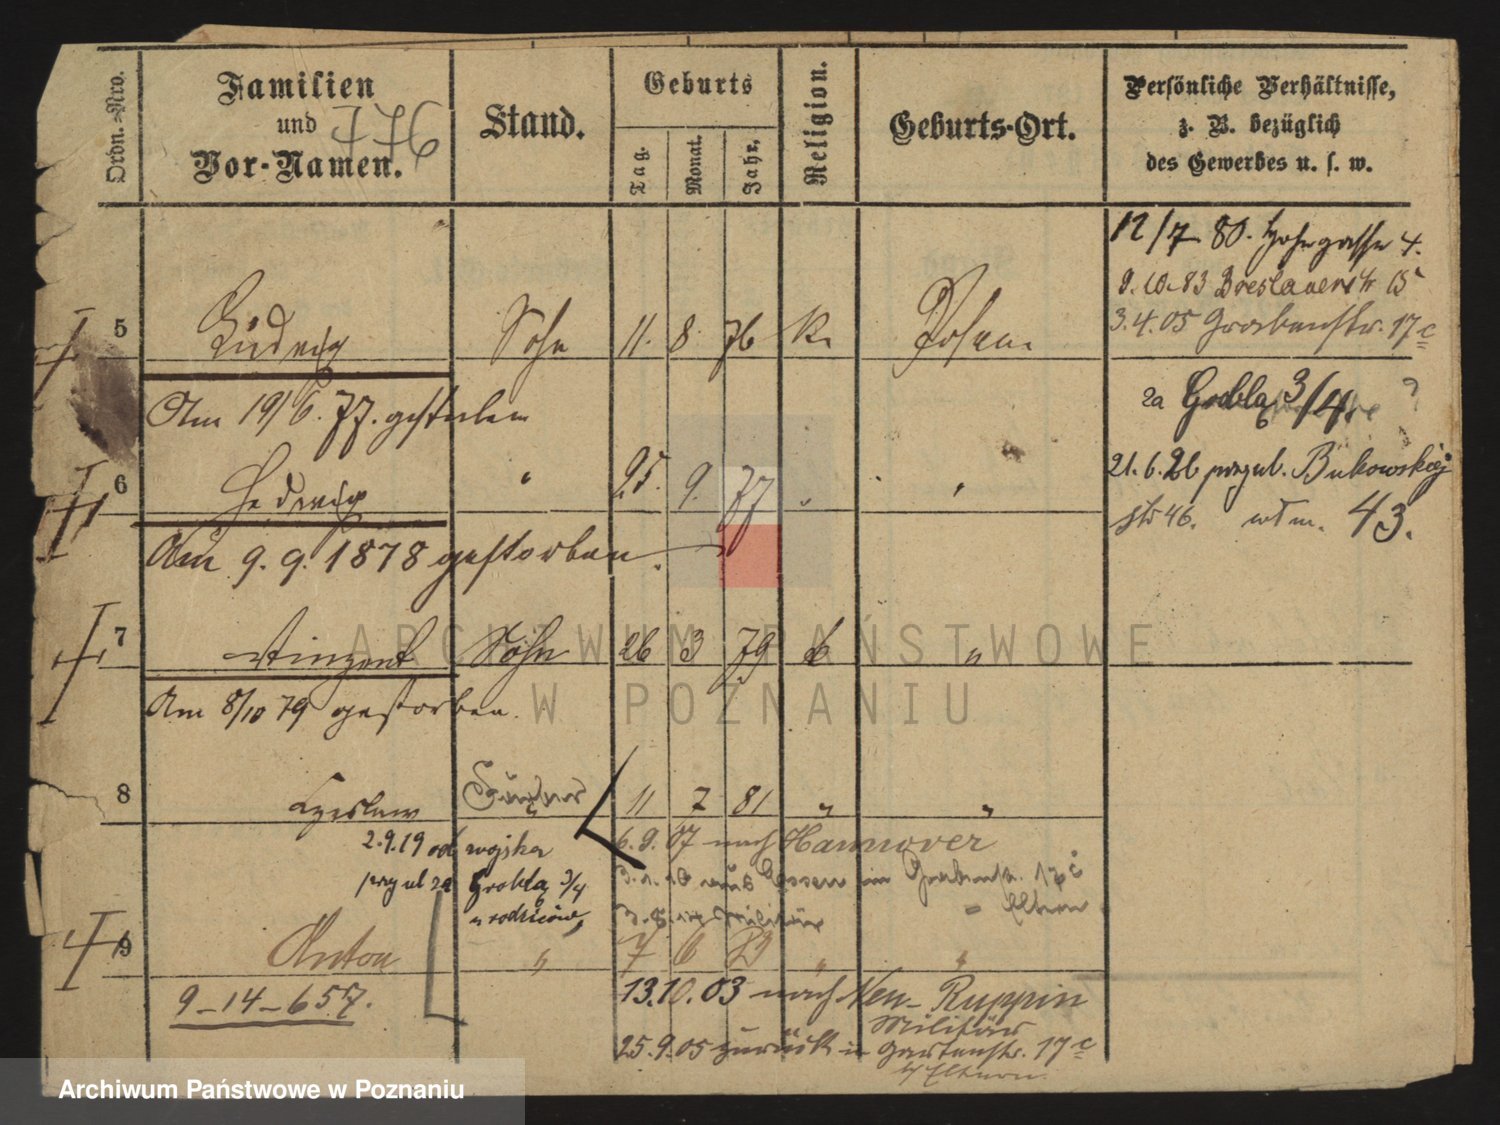 Ordn.-Nro.
Familien
und
Vor-Namen.
776
Stand.
Geburts
Tag.
Monat.
Jahr,
Religion.
Geburts-Ort.
Persönliche Verhältnisse,
z. B. bezüglich
des Gewerbes u. s. w.
12/7 80. 4.
9.10.83 Breslauerstr 15
3.4.05 Grabenstr. 17c
5 Ludwig Sohn 11. 8. 76 k. Posen.
Am 19/6. 77. gestorben
za Groblą 3/4.
6 Hedwig " 25. 9. 77 " "
21.6.26 przy ul. Bukowskiej
46. wł m. 43.
Am 9. 9. 1878 gestorben.
7 Vinzent Sohn 26 3 79 k "
Am 8/10 79 gestorben.
8 Czeslaw 11 7 81 " "
2.9.19 od wojska
6.9.07 nach Hannover
przy ul za Groblą 3/4
aus Essen im Grabenstr. 17c
u rodziców,
Eltern
Militär
9 Anton " 7 6 " "
9-14-657.
13.10.03 nach Neu-Ruppin
Militär
25.9.05 zurück in Gartenstr. 17c
Eltern.
ARCHIWUM PAŃSTWOWE
W POZNANIU
Archiwum Państwowe w Poznaniu